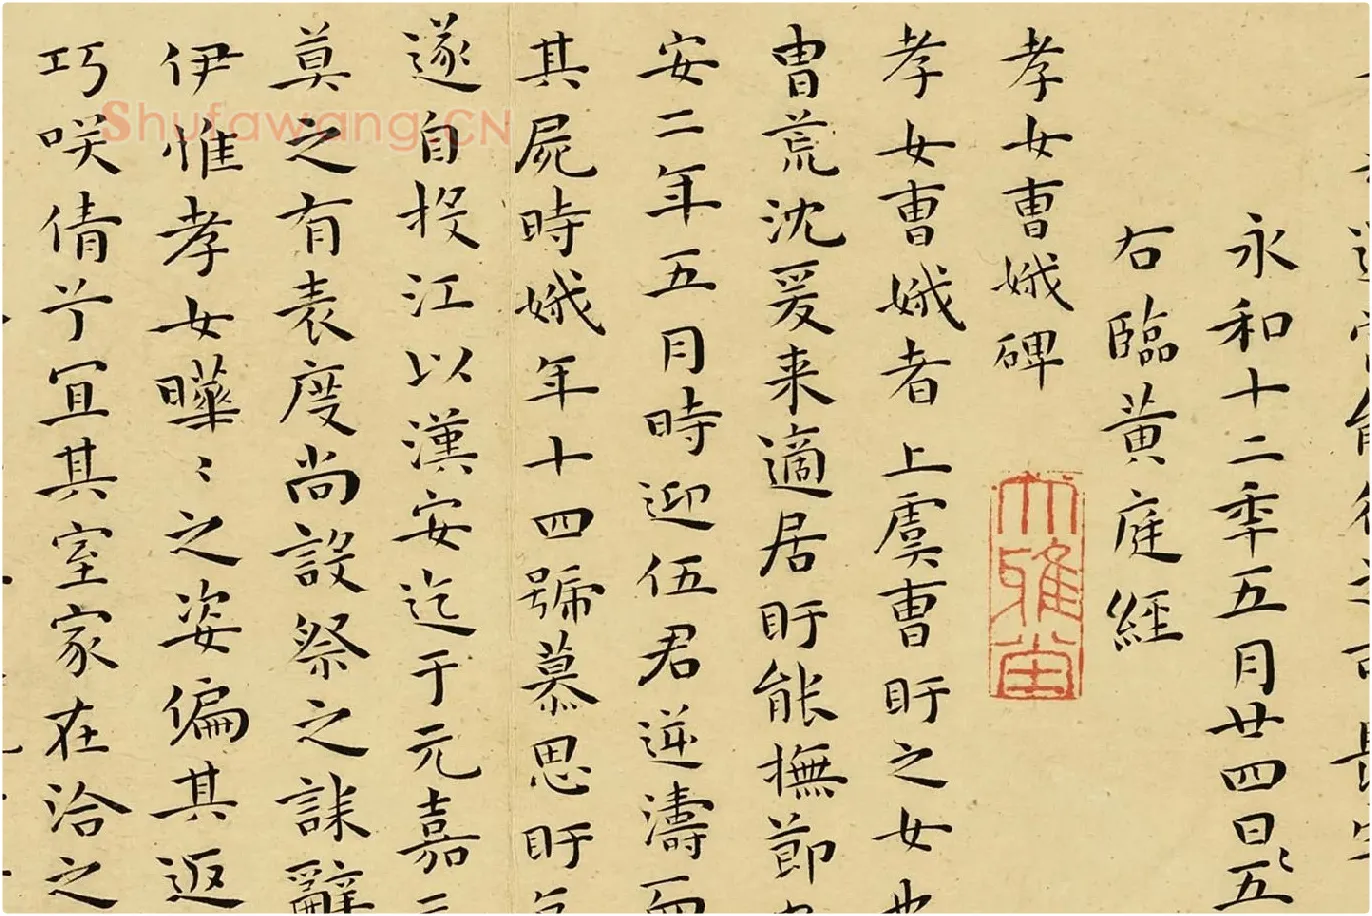 永和十二季五月廿四日五
右臨黃庭經
孝女曹娥碑
大雅堂
孝女曹娥者上虞曹盱之女也
冑荒沈爰来適居盱能撫節
安二年五月時迎伍君逆濤而
其屍時娥年十四號慕思盱
遂自投江以漢安迄于元嘉二
莫之有表度尚設祭之誄辭
伊惟孝女曄〻之姿偏其返
巧咲倩兮宜其室家在洽之
Shufawang.CN